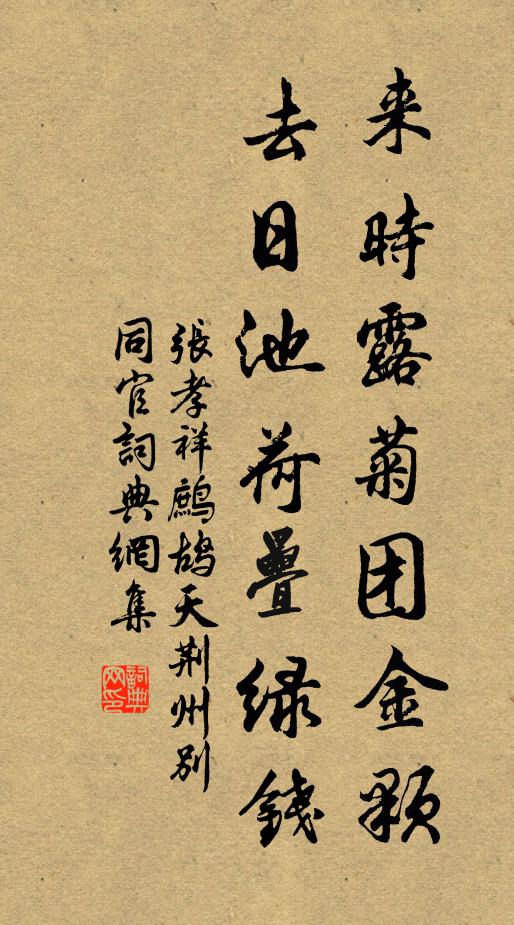 来時露菊团金顆
去日池荷疊绿錢
張孝祥鷓鴣天荆州别
同官詞典網集
詞典
网印